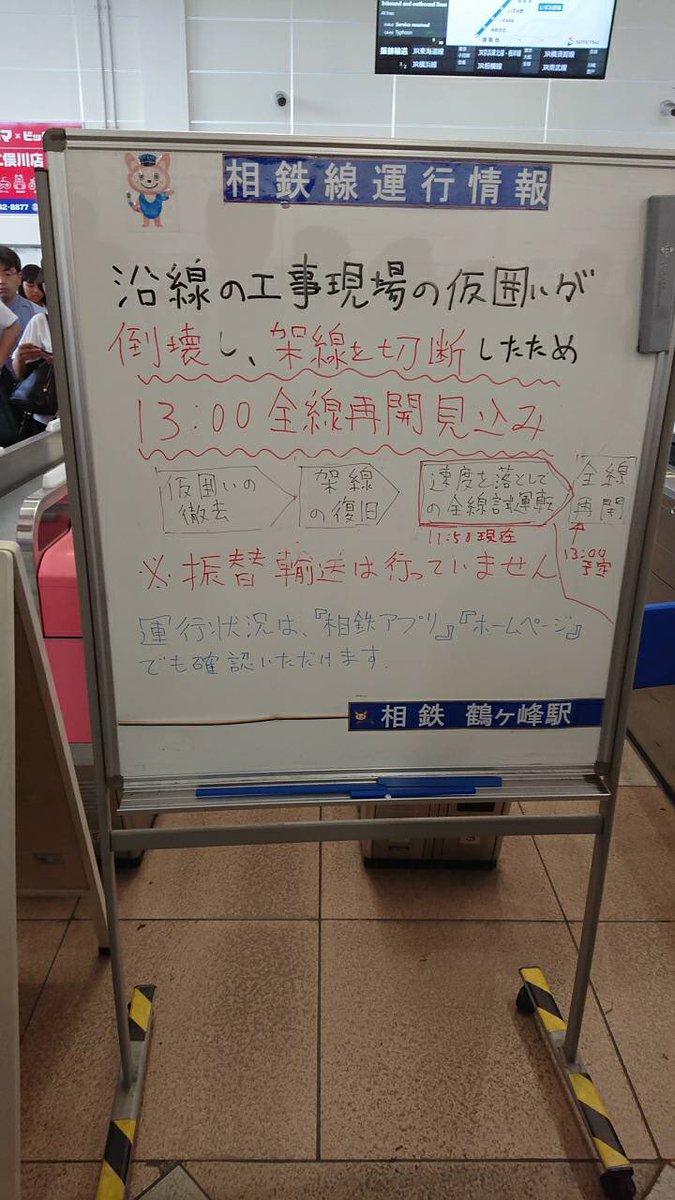 Inbound and outbound lines
Service resumed
Typhoon
振替輸送
JR東海道線
JR京浜東北線・根岸線
JR横須賀線
JR横浜線
JR相模線
JR南武線
俣川店
相鉄線運行情報
沿線の工事現場の仮囲いが
倒壊し、架線を切断したため
13:00全線再開見込み
仮囲いの
撤去
架線
の復旧
速度を落として
の全線試運転
全線
再開
11:58現在
13:00
予定
※振替輸送は行っていません
運行状況は、『相鉄アプリ』『ホームページ』
でも確認いただけます.
相鉄 鶴ヶ峰駅